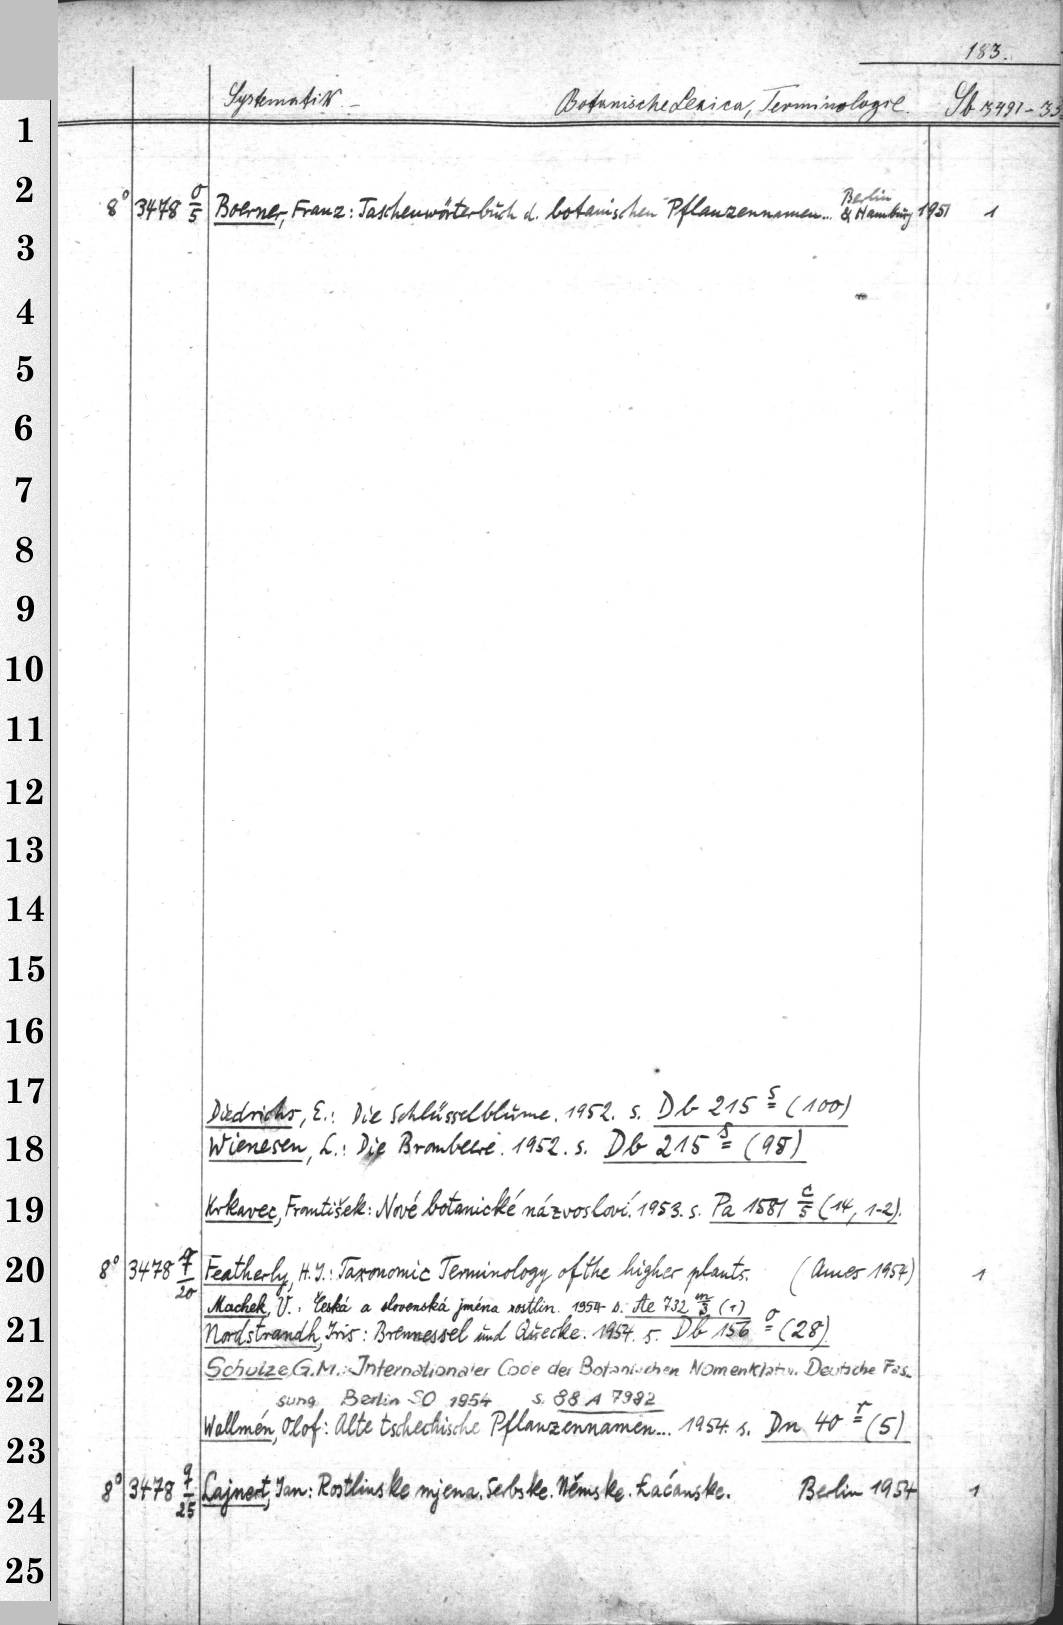 183.
Systematik. Botanische Lexica, Terminologie. Sb 3491-
1
2
8° 3478 o/5 Boerner, Franz: Taschenwörterbuch d. botanischen Pflanzennamen... Berlin & Hamburg 1951 1
3
4
5
6
7
8
9
10
11
12
13
14
15
16
17
Diedrichs, E.: Die Schlüsselblume. 1952. s. Db 215 s= (100)
18
Wienesen, L.: Die Brombeere. 1952. s. Db 215 s= (98)
19
Krkavec, František: Nové botanické názvosloví. 1953. s. Pa 1581 c/5 (14, 1-2).
20
8° 3478 q/20 Featherly, H. J.: Taxonomic Terminology of the higher plants. (Ames 1954) 1
Machek, V.: Česká a slovenská jména rostlin. 1954 s. Ae 732 m/3 (1)
21
Nordstrandh, Iris: Brennessel und Quecke. 1954. s. Db 156 o= (28)
Schulze, G.M.: Internationaler Code der Botanischen Nomenklatur. Deutsche Fas-
22
sung Berlin SO 1954 s. 88 A 7982
Wallmén, Olof: Alte tschechische Pflanzennamen... 1954. s. Dn 40 r= (5)
23
8° 3478 q/25 Lajnert, Jan: Rostlinske mjena. Serbske. Němske. Łaćanske. Berlin 1954 1
24
25